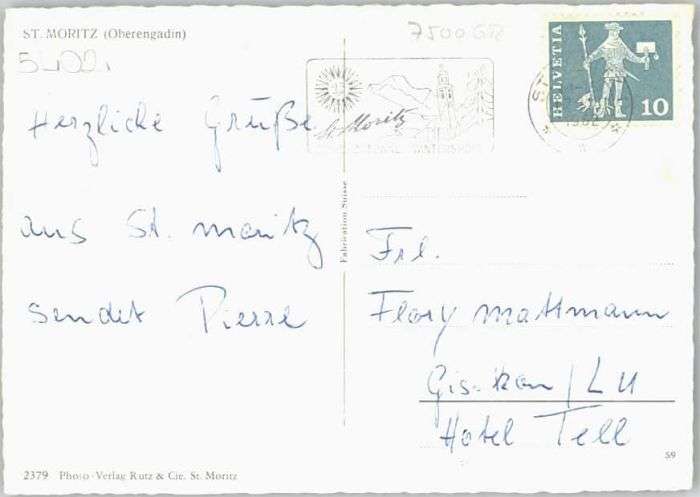 ST. MORITZ (Oberengadin)
7500 GR
HELVETIA
10
St. Moritz
Herzliche Grüße
aus St. moritz
sendet Pierre
Fabrication Suisse
Frl.
Flory Mattmann
Gisikon/LU
Hotel Tell
59
2379 Photo-Verlag Rutz & Cie. St. Moritz